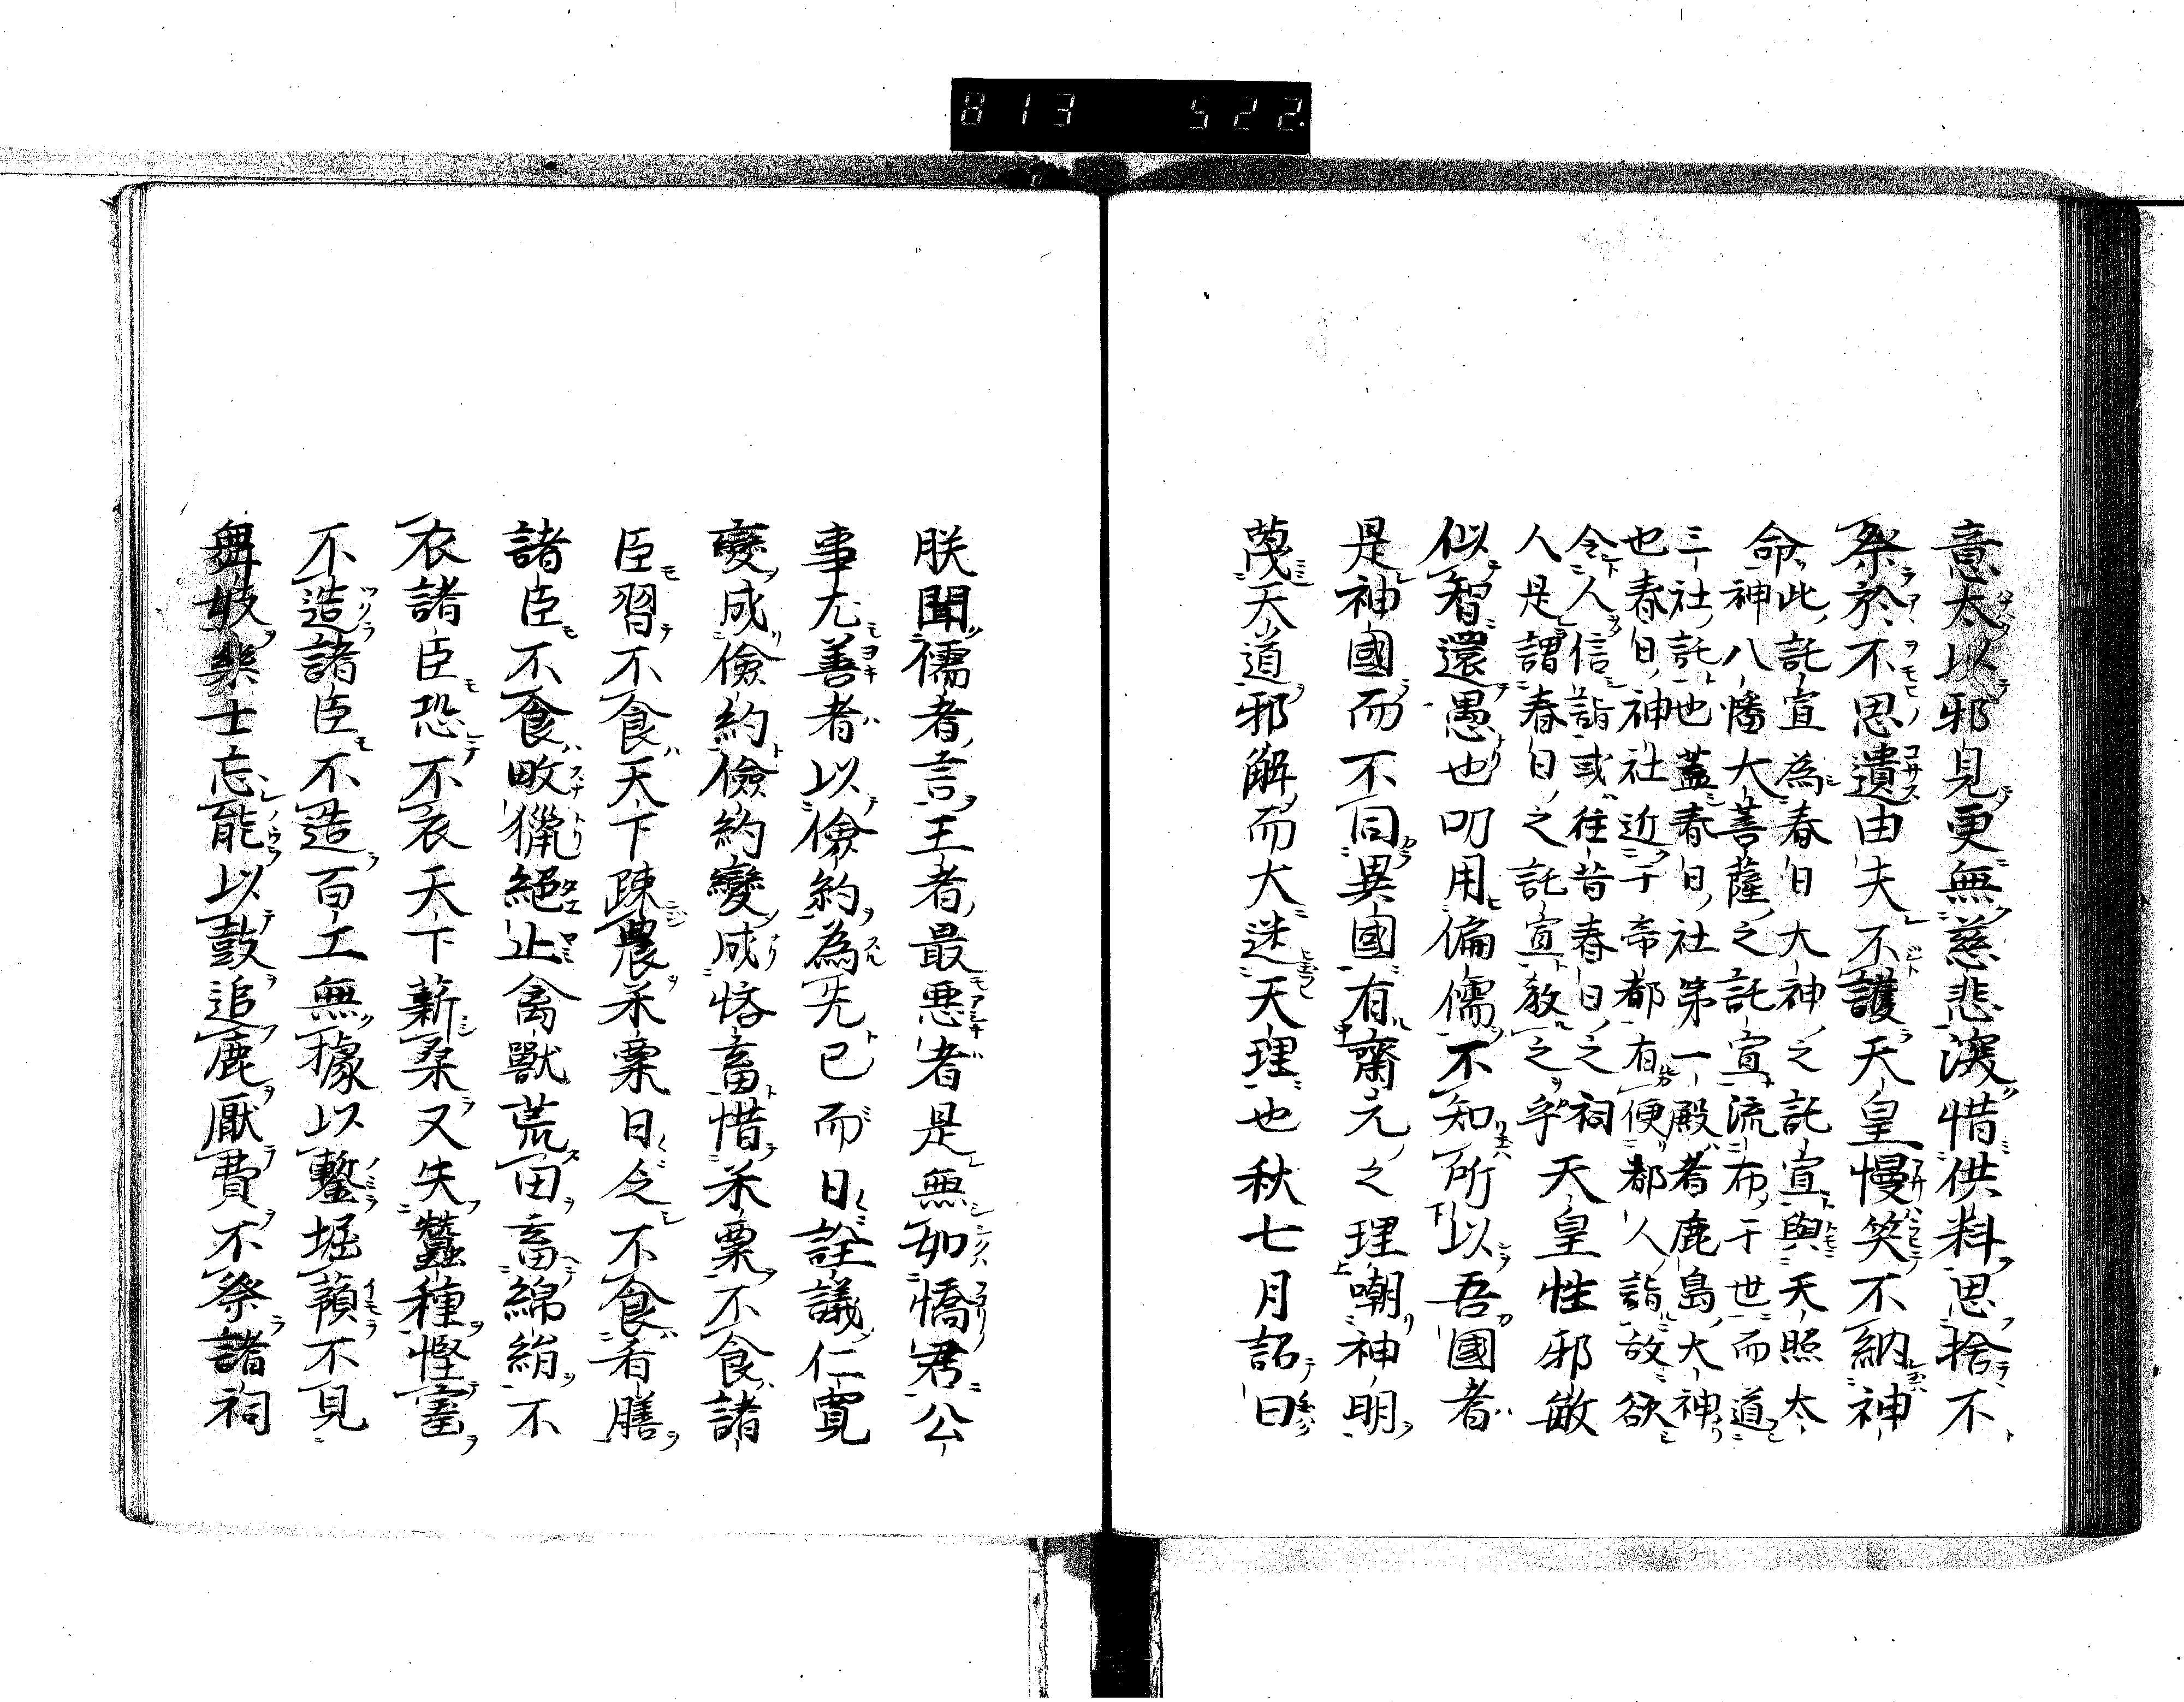 813 522
意太以邪見更無慈悲深惜供料思捨不
祭於不思遺由夫不護天皇慢笑不納神
命此託宣為春日大神之託宣與天照太
神八幡大菩薩之託宣流布于世而道
三社託也蓋春日社第一殿者鹿島大神
也春日神社近于帝都有便都人詣故欲
令人信詣或往昔春日之祠
人是謂春日之託宣教之乎天皇性邪敏
似智還愚也叨用偏儒不知所以吾國者
是神國而不同異國有齋元之理嘲神明
蔑天道邪解而大迷天理也秋七月詔曰
朕聞儒者言王者最悪者是無如憍君公
事尤善者以儉約為先已而日詮議仁寛
變成儉約儉約變成悋畜惜米粟不食諸
臣習不食天下疎農米粟日乏不食看膳
諸臣不食畋獵絕止禽獸荒田畜綿絹不
衣諸臣恐不衣天下薪桑又失蠶種慳室
不造諸臣不造百工無據以鑿堀蘋不見
舞妓樂士忘能以鼓追鹿厭費不祭諸祠